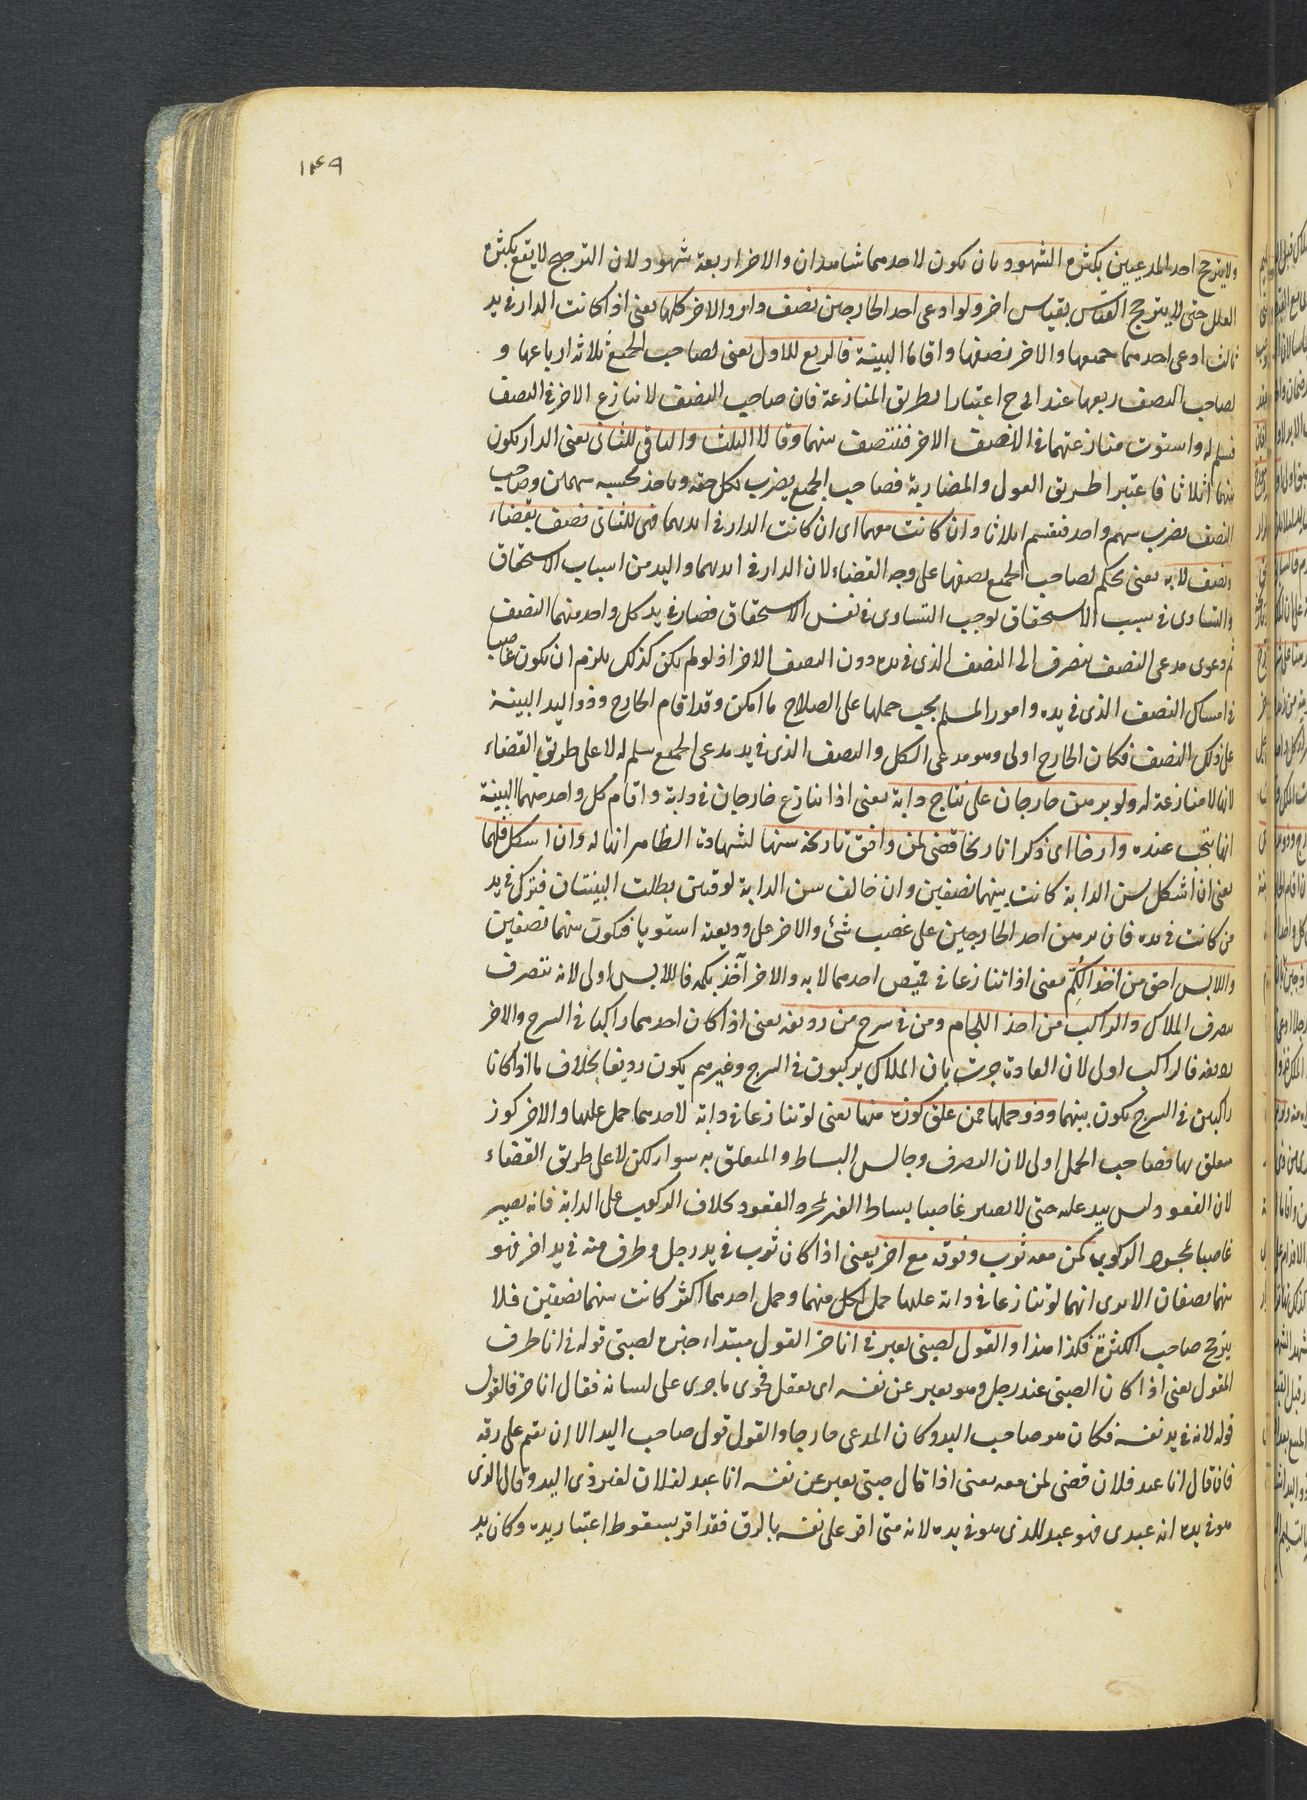 ١٤٩
ولا يترجح احد المدعيين بكثرة الشهود بان يكون لاحدهما شاهدان والاخر اربعة شهود لان الترجيح لا يقع بكثرة
العلل حتى لا يترجح القياس بقياس اخر ولو ادعى احد الخارجين نصف دار والاخر كلها يعنى اذا كانت الدار فى يد
ثالث ادعى احدهما جميعها والاخر نصفها واقاما البينة فالربع للاول يعنى لصاحب الجميع ثلاثة ارباعها و
لصاحب النصف ربعها عند ابى ح اعتبارا بطريق المنازعة فان صاحب النصف لا ينازع الاخر فى النصف
فسلم له واستوت منازعتهما فى النصف الاخر فينتصف بينهما وقالا الثلث والباقى للثانى يعنى الدار يكون
بينهما اثلاثا فاعتبرا طريق العول والمضاربة فصاحب الجميع يضرب بكل حقه وياخذ بحسبه سهمين وصاحب
النصف يضرب بسهم واحد فيقسم اثلاثا وان كانت معهما اى ان كانت الدار فى ايديهما فهى للثانى نصف بقضاء
ونصف لا به يعنى يحكم لصاحب الجميع نصفها على وجه القضاء لان الدار فى ايديهما واليد من اسباب الاستحقاق
والتساوى فى سبب الاستحقاق يوجب التساوى فى نفس الاستحقاق فصار فى يد كل واحد منهما النصف
ثم دعوى مدعى النصف ينصرف الى النصف الذى فى يده دون النصف الاخر اذ لو لم يكن كذلك يلزم ان يكون غاصبا
فى امساك النصف الذى فى يده وامور المسلم يجب حملها على الصلاح ما امكن وقد اقام الخارج وذو اليد البينة
على ذلك النصف فكان الخارج اولى وهو مدعى الكل والنصف الذى فى يد مدعى الجميع سلم له لا على طريق القضاء
لانها لا منازعة له ولو برهن خارجان على نتاج دابة يعنى اذا تنازع خارجان فى دابة واقام كل واحد منهما البينة
انها نتجت عنده وارخا اى ذكرا تاريخا قضى لمن وافق تاريخه سنها لشهادة الظاهر انها له وان اشكل فلهما
يعنى ان اشكل سن الدابة كانت بينهما نصفين وان خالف سن الدابة لوقتين بطلت البينتان فيترك فى يد
من كانت فى يده فان برهن احد الخارجين على غصب شئ والاخر على وديعته استويا فيكون بينهما نصفين
واللابس احق من اخذ الكُمّ يعنى اذا تنازعا فى قميص احدهما لابسه والاخر آخذ بكمه فاللابس اولى لانه يتصرف
تصرف الملاك والراكب من اخذ اللجام ومن فى سرج من رديفه يعنى اذا كان احدهما راكبا فى السرج والاخر
رديفه فالراكب اولى لان العادة جرت بان الملاك يركبون فى السرج وغيرهم يكون رديفا بخلاف ما اذا كانا
راكبين فى السرج يكون بينهما وذو حملها ممن علق كوزه منها يعنى لو تنازعا فى دابة لاحدهما حمل عليها والاخر كوز
معلق بها فصاحب الحمل اولى لان التصرف وجالس البساط والمتعلق به سواء لكن لا على طريق القضاء
لان القعود ليس بيد عليه حتى لا يصير غاصبا بساط الغير بمجرد القعود بخلاف الركوب على الدابة فانه يصير
غاصبا بمجرد الركوب كمن معه ثوب وطرفه مع اخر يعنى اذا كان ثوب فى يد رجل وطرف منه فى يد اخر فهو
بينهما نصفان الا يرى انهما لو تنازعا فى دابة عليها حمل لكل منهما وحمل احدهما اكثر كانت بينهما نصفين فلا
يترجح صاحب الكثرة فكذا هذا والقول لصبى يعبر فى انا حر القول مبتداء خبره لصبى قوله فى انا ظرف
المقول يعنى اذا كان الصبى عند رجل وهو يعبر عن نفسه اى يعقل فحوى ما جرى على لسانه فقال انا حر فالقول
قوله لانه فى يد نفسه فكان هو صاحب اليد وكان المدعى خارجا والقول قول صاحب اليد الا ان يقيم على رقه
فان قال انا عبد فلان قضى لمن معه يعنى اذا قال صبى يعبر عن نفسه انا عبد لفلان لغير ذى اليد وقال الذى
هو فى يده انه عبدى فهو عبد للذى هو فى يده لانه متى اقر على نفسه بالرق فقد اقر بسقوط اعتبار يده وكان يد